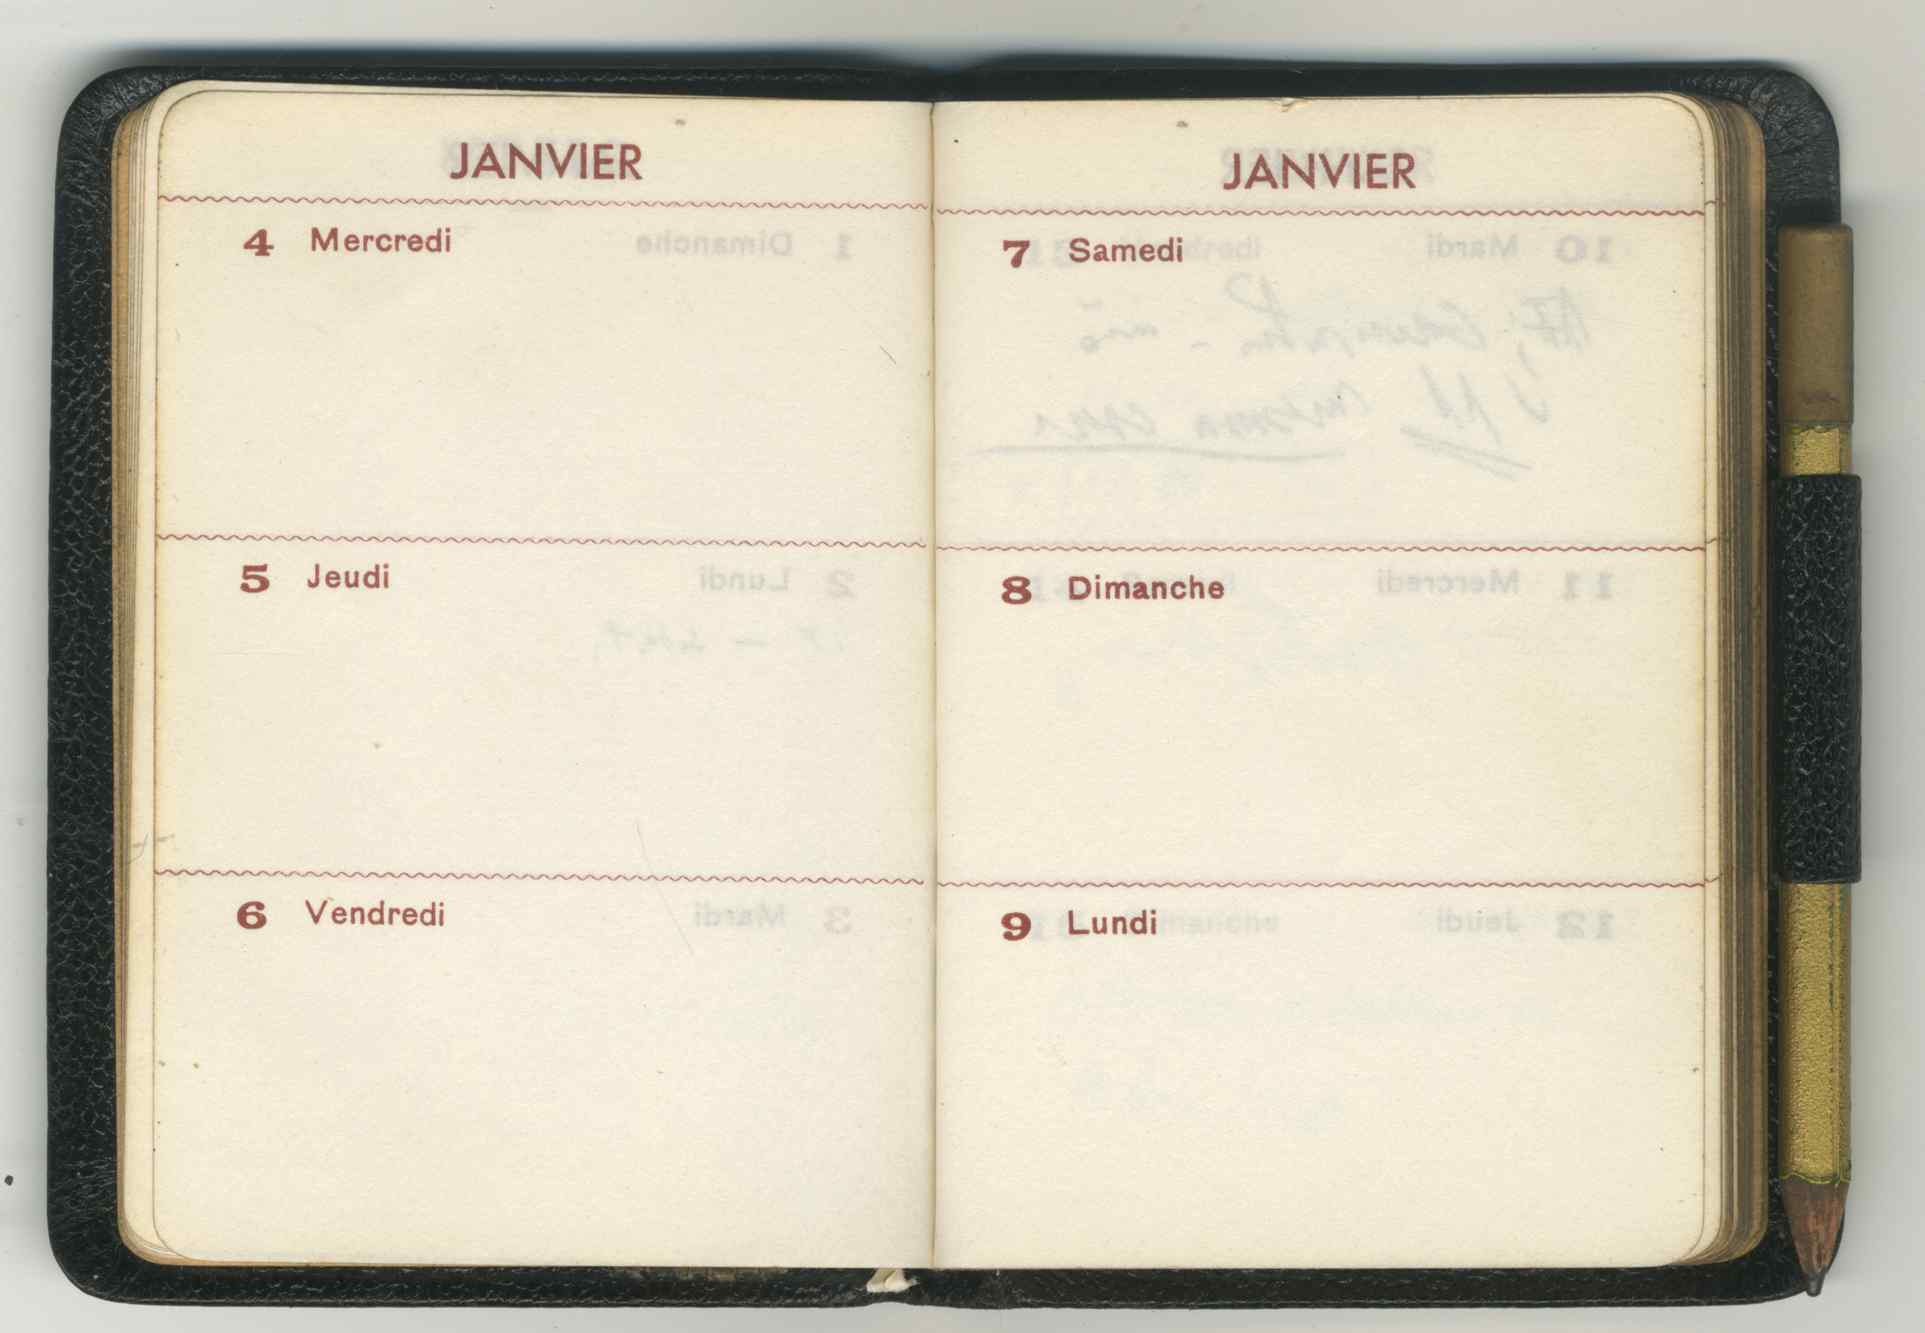 JANVIER
4 Mercredi
5 Jeudi
6 Vendredi
JANVIER
7 Samedi
8 Dimanche
9 Lundi